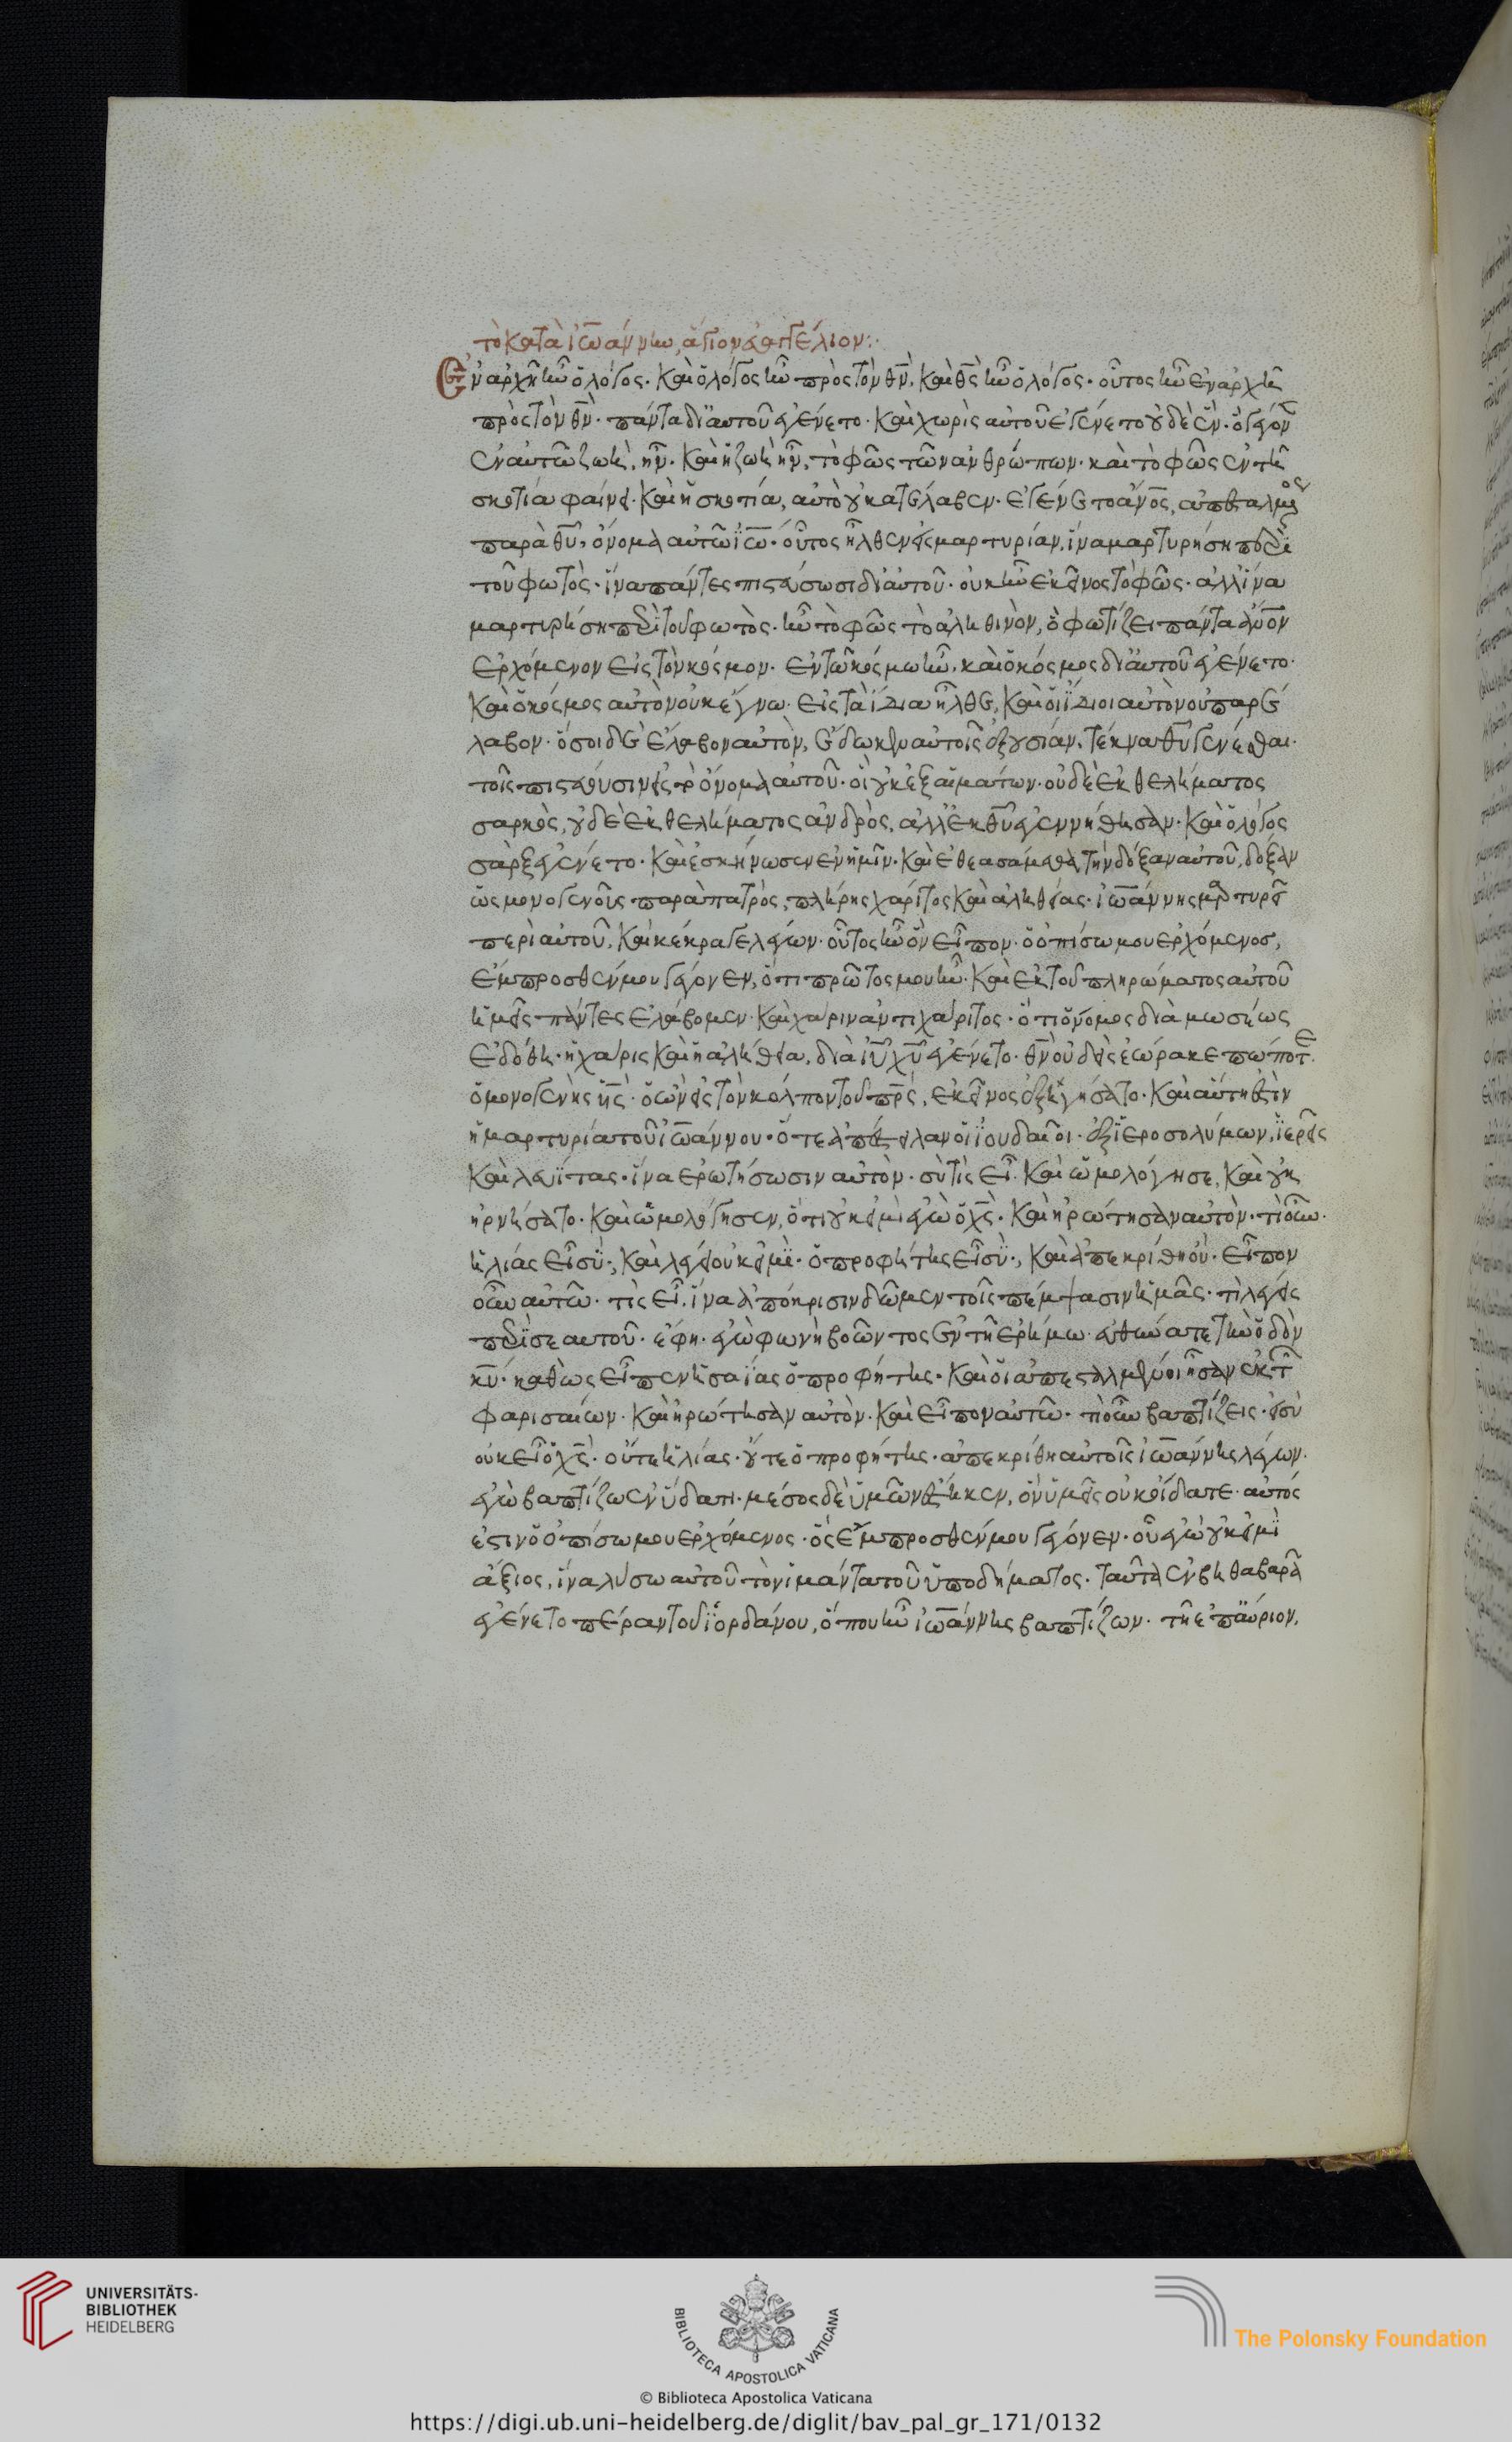 τὸ κατὰ ἰω̅άννην, ἅγιον εὐαγγέλιον:·
Ἐν ἀρχῆ ἦν ὁ λόγος· καὶ ὁ λόγος ἦν πρὸς τὸν θν̅· καὶ θς̅ ἦν ὁ λόγος· οὗτος ἦν ἐν ἀρχῆ
πρὸς τὸν θν̅· πάντα δι αὐτοῦ ἐγένετο· καὶ χωρὶς αὐτοῦ ἐγένετο οὐδὲ ἕν· ὃ γέγον
ἐν αὐτῶ ζωὴ, ἦν· καὶ ἡ ζωὴ ἦν, τὸ φῶς τῶν ἀνθρώπων· καὶ τὸ φῶς ἐν τῆ
σκοτία φαίνει· καὶ ἡ σκοτία, αὐτὸ οὐ κατέλαβεν· ἐγένετο ἄνος̅, ἀπεσταλμένος
παρὰ θυ̅, ὄνομα αὐτῶ ἰω̅· οὗτος ἦλθεν εἰς μαρτυρίαν, ἵνα μαρτυρήση περὶ
τοῦ φωτὸς· ἵνα πάντες πιστεύσωσι δι αὐτοῦ· οὐκ ἦν ἐκεῖνος τὸ φῶς· ἀλλ ἵνα
μαρτυρήση περὶ τοῦ φωτὸς· ἦν τὸ φῶς τὸ ἀληθινὸν, ὃ φωτίζει πάντα ἀνο̅ν
ἐρχόμενον εἰς τὸν κόσμον· ἐν τῶ κόσμω ἦν, καὶ ὁ κόσμος δι αὐτοῦ ἐγένετο·
καὶ ὁ κόσμος αὐτὸν οὐκ ἔγνω· εἰς τὰ ἴδια ἦλθε, καὶ οἱ ἴδιοι αὐτὸν οὐ παρέ
λαβον· ὅσοι δὲ ἔλαβον αὐτὸν, ἔδωκεν αὐτοῖς ἐξουσίαν, τέκνα θυ̅ γενέσθαι·
τοῖς πιστεύουσιν εἰς τὸ ὄνομα αὐτοῦ· οἳ οὐκ ἐξ αἱμάτων· οὐδὲ ἐκ θελήματος
σαρκὸς, οὐδὲ ἐκ θελήματος ἀνδρὸς, ἀλλ ἐκ θυ̅ ἐγεννήθησαν· καὶ ὁ λόγος
σὰρξ ἐγένετο· καὶ ἐσκήνωσεν ἐν ἡμῖν· καὶ ἐθεασάμεθα τὴν δόξαν αὐτοῦ, δόξαν
ὡς μονογενοῦς παρὰ πατρὸς, πλήρης χάριτος καὶ ἀληθείας· ἰω̅άννης μαρτυρεῖ
περὶ αὐτοῦ, καὶ κέκραγε λέγων· οὗτος ἦν ὃν εἶπον· ὁ ὀπίσω μου ἐρχόμενοσ,
ἔμπροσθέν μου γέγονεν, ὅτι πρῶτος μου ἦν· καὶ ἐκ τοῦ πληρώματος αὐτοῦ
ἡμεῖς πάντες ἐλάβομεν· καὶ χάριν ἀντι χάριτος· ὅτι ὁ νόμος διὰ μωσέως
ἐδόθη· ἡ χάρις καὶ ἡ ἀλήθεια, διὰ ιυ̅ χυ̅ ἐγένετο· θν̅ οὐδεὶς ἑώρακε πώποτε·
ὁ μονογενὴς υἱς̅· ὁ ὢν εἰς τὸν κόλπον τοῦ πρς̅, ἐκεῖνος ἐξηγήσατο· καὶ αὕτη ἐστὶν
ἡ μαρτυρία τοῦ ἰω̅άννου· ὅτε ἀπέστειλαν οἱ ἰουδαῖοι· ἐξ ἱεροσολύμων, ἱερεῖς
καὶ λευίτας· ἵνα ἐρωτήσωσιν αὐτὸν· σὺ τίς εἶ· καὶ ὡμολόγησε, καὶ οὐκ
ἠρνήσατο· καὶ ὡμολόγησεν, ὅτι οὐκ εἰμὶ ἐγὼ ὁ χς̅· καὶ ἠρώτησαν αὐτὸν· τί οὖν·
ἡλίας εἶ σύ·, καὶ λέγει οὐκ εἰμὶ· ὁ προφήτης εἶ σύ·, καὶ ἀπεκρίθη οὔ· εἶπον
οὖν αὐτῶ· τίς εἶ· ἵνα ἀπόκρισιν δῶμεν τοῖς πέμψασιν ἡμᾶς· τί λέγεις
περὶ σεαυτοῦ· ἔφη· ἐγὼ φωνὴ βοῶντος ἐν τῆ ἐρήμω· εὐθύνατε τὴν ὁδὸν
κυ̅· καθὼς εἶπεν ἡσαΐας ὁ προφήτης· καὶ οἱ ἀπεσταλμένοι ἦσαν ἐκ τῶν
φαρισαίων· καὶ ἠρώτησαν αὐτὸν· καὶ εἶπον αὐτῶ· τί οὖν βαπτίζεις· εἰ σὺ
οὐκ εἶ ὁ χς̅· οὔτε ἡλίας· οὔτε ὁ προφήτης· ἀπεκρίθη αὐτοῖς ἰω̅άννης λέγων·
ἐγὼ βαπτίζω ἐν ὕδατι· μέσος δὲ ὑμῶν ἕστηκεν, ὃν ὑμεῖς οὐκ οἴδατε· αὐτός
ἐστιν ὁ ὀπίσω μου ἐρχόμενος· ὃς ἔμπροσθέν μου γέγονεν· οὗ ἐγὼ οὐκ εἰμὶ
ἄξιος, ἵνα λύσω αὐτοῦ τὸν ἱμάντα τοῦ ὑποδήματος· ταῦτα ἐν βηθαβαρᾶ
ἐγένετο πέραν τοῦ ἰορδάνου, ὅπου ἦν ἰω̅άννης βαπτίζων· τῆ ἐπαύριον,
UNIVERSITÄTS-
BIBLIOTHEK
HEIDELBERG
BIBLIOTECA APOSTOLICA VATICANA
The Polonsky Foundation
© Biblioteca Apostolica Vaticana
https://digi.ub.uni-heidelberg.de/diglit/bav_pal_gr_171/0132